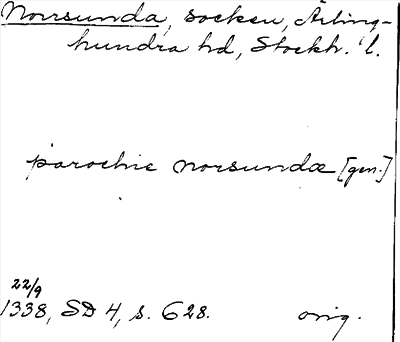 Norrsunda, socken, Ärling-
hundra hd, Stockh. l.
parochie norsundæ [gen.]
22/9
1338, SD 4, s. 628. orig.